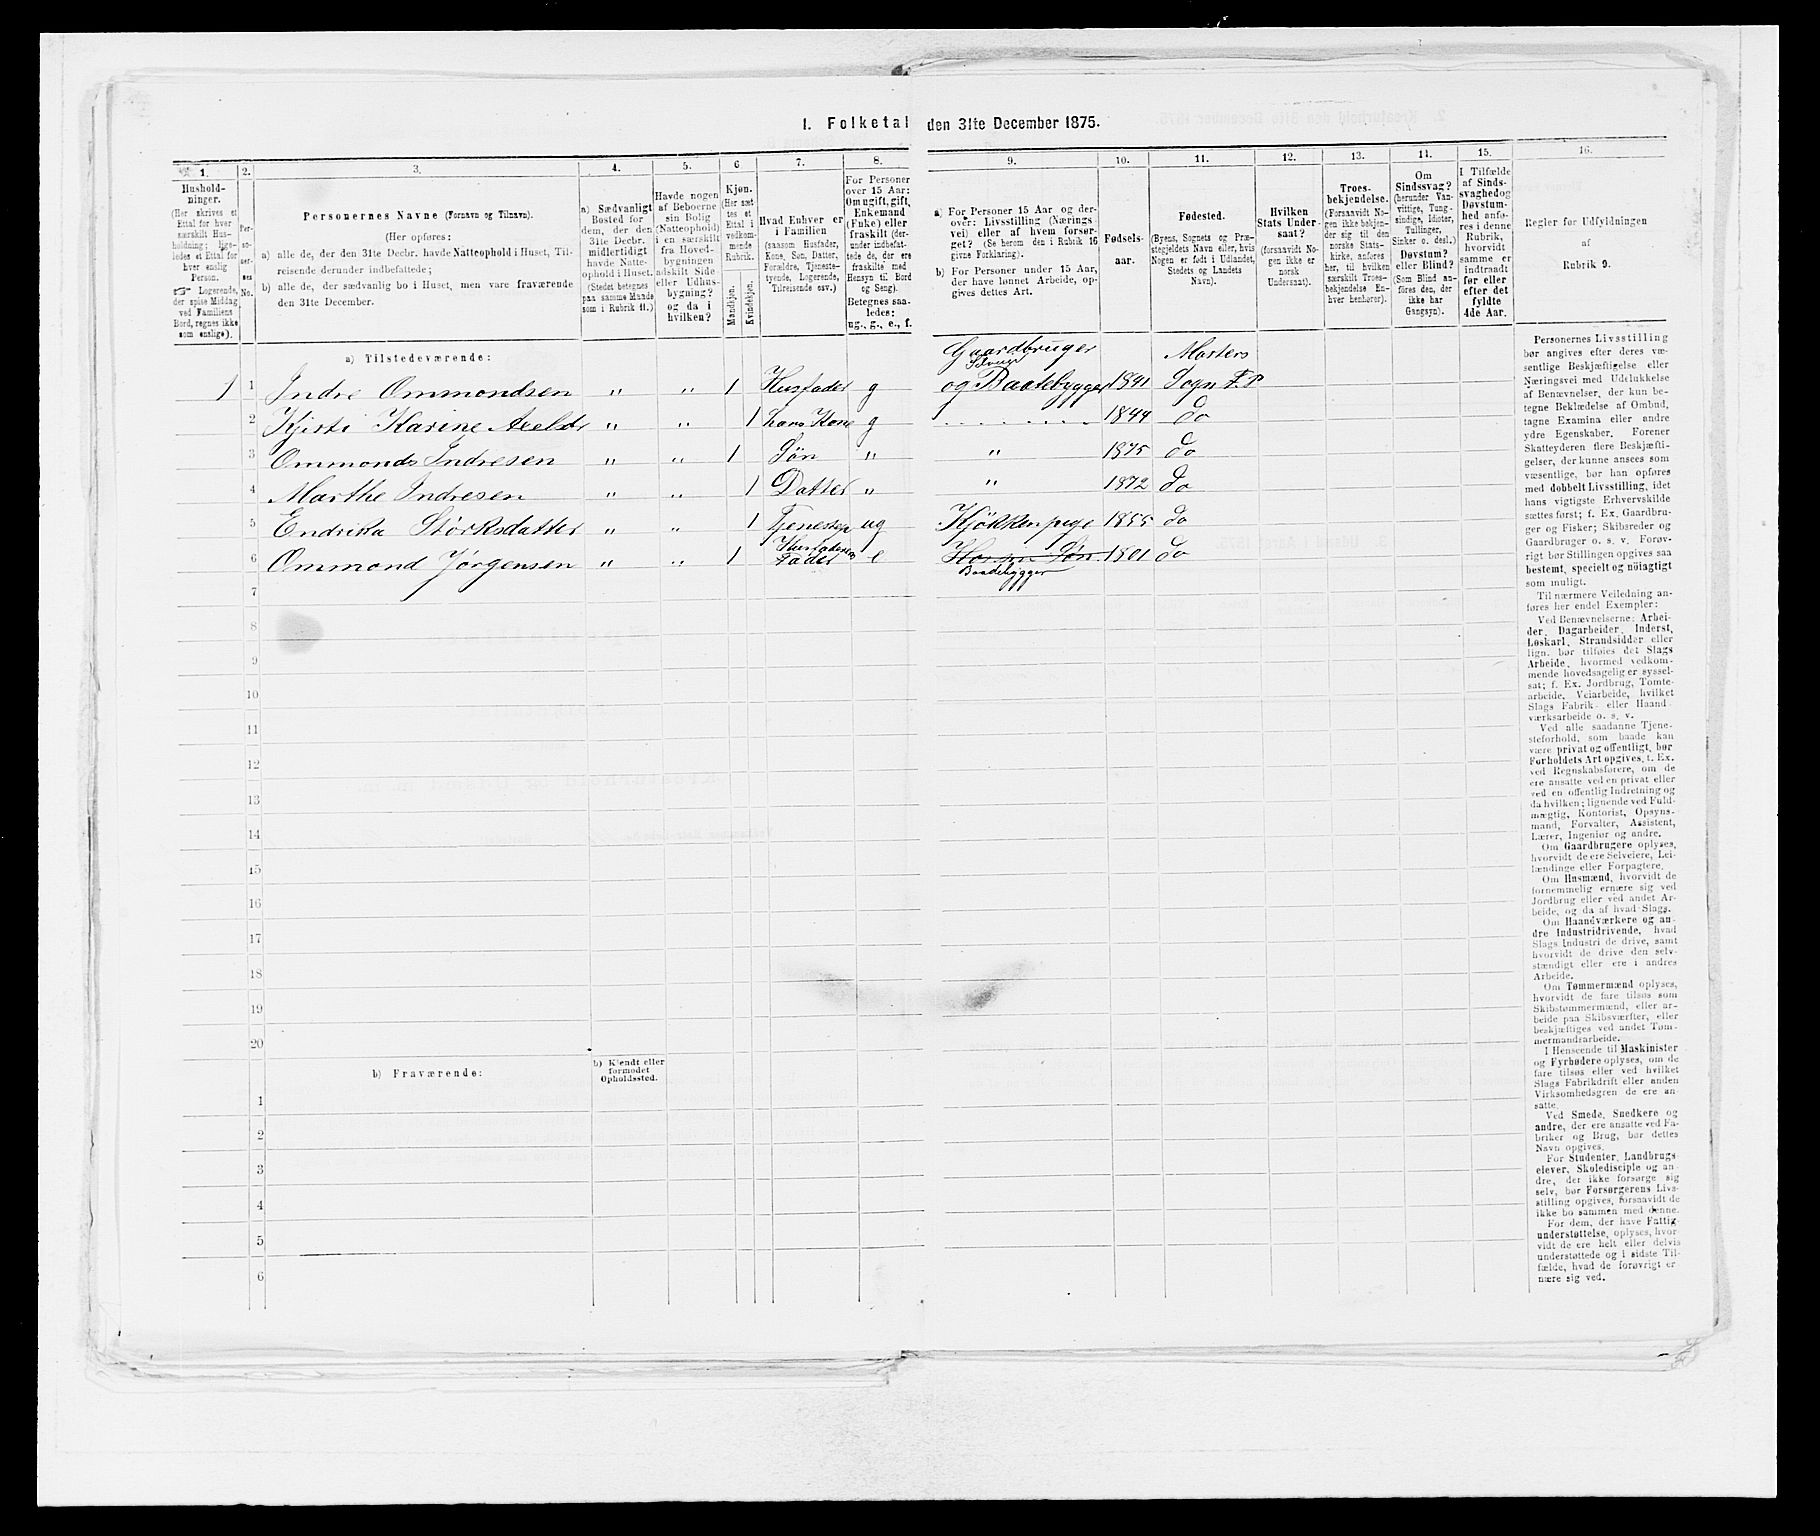 1. Folketal den 31te December 1875.
1. 2. 3. 4. 5. 6 7. 8. 9. 10. 11. 12. 13. 14. 15. 16.
Hushold-
ninger.
(Her skrives et
Ettal for hver
særskilt Hus-
holdning; lige-
ledes et Ettal for
hver enslig
Person.
☞ Logerende,
der spise Middag
ved Familiens
Bord, regnes ikke
som enslige).
Per-
so-
ner-
nes
No.
Personernes Navne (Fornavn og Tilnavn).
(Her opføres:
a) alle de, der den 31te Decbr. havde Natteophold i Huset, Til-
reisende derunder indbefattede;
b) alle de, der sædvanlig bo i Huset, men vare fraværende
den 31te December.
a) Sædvanligt
Bosted for
dem, der den
31te Decbr.
midlertidigt
havde Natte-
ophold i Huset.
(Stedet betegnes
paa samme Maade
som i Rubrik 11.)
Havde nogen
af Beboerne
sin Bolig
(Natteophold)
i en særskilt
fra Hoved-
bygningen
adskilt Side
eller Udhus-
bygning?
og da i
hvilken?
Kjøn.
(Her sæt-
tes et
Ettal i
vedkom-
mende
Rubrik.
Mandkjøn.
Kvindekjøn.
Hvad Enhver er
i Familien
(saasom Husfader,
Kone, Søn, Datter,
Forældre, Tjeneste-
tyende, Logerende,
Tilreisende osv.)
For Personer
over 15 Aar:
Om ugift, gift,
Enkemand
(Enke) eller
fraskilt (der-
under indbefat-
tede de, der ere
fraskilte med
Hensyn til Bord
og Seng).
Betegnes saa-
ledes:
ug., g., e., f.
a) For Personer 15 Aar og der-
over: Livsstilling (Nærings-
vei) eller af hvem forsør-
get? (Se herom den i Rubrik 16
givne Forklaring).
b) For Personer under 15 Aar,
der have lønnet Arbeide, op-
gives dettes Art.
Fødsels-
aar.
Fødested.
(Byens, Sognets og Præ-
stegjeldets Navn eller, hvis
Nogen er født i Udlandet,
Stedets og Landets
Navn).
Hvilken
Stats Under-
saat?
(forsaavidt No-
gen ikke er
norsk
Undersaat).
Troes-
bekjendelse.
(Forsaavidt No-
gen ikke bekjen-
der sig til den
norske Stats-
kirke, anføres
her, til hvilken
særskilt Troes-
bekjendelse En-
hver henhører).
Om
Sindssvag?
(herunder Van-
vittige, Tung-
sindige, Idioter,
Tullinger,
Sinker o. desl.)
Døvstum?
eller Blind?
(Som Blind an-
føres den, der
ikke har
Gangsyn).
I Tilfælde
af Sinds-
svaghed og
Døvstum-
hed anfø-
res i denne
Rubrik,
hvorvidt
samme er
indtraadt
før eller
efter det
fyldte
4de Aar.
Regler for Udfyldningen
af
Rubrik 9.
a) Tilstedeværende:
Gaardbruger Mosters
1 1 Indre Ommondsen " " 1 Husfader g og Baatebygger 1841 Sogn F. P
2 Kjisti Karine Axelds " " 1 hans Kone g 1844 do
3 Ommonds Indresen " " 1 Søn " " 1875 do
4 Marthe Indresen " " 1 Datter " " 1872 do
5 Endrikka Størksdatter " " 1 Tjenestep ug Kjøkkenpige 1855 do
6 Ommond Jørgensen " " 1 Husfaderen Fader e 1801 do
Baadebygger
7
8
9
10
11
12
13
14
15
16
17
18
19
20
b) Fraværende:
b) Kjendt eller
formodet
Opholdssted.
1
2
3
4
5
6
Personernes Livsstilling
bør angives efter deres væ-
sentlige Beskjæftigelse eller
Næringsvei med Udelukkelse
af Benævnelser, der kun be-
tegne Beklædelse af Ombud,
tagne Examina eller andre
ydre Egenskaber. Forener
Skatteyderen flere Beskjæfti-
gelser, der kunne ansees som
væsentlige, bør han opføres
med dobbelt Livsstilling, idet
hans vigtigste Erhvervskilde
sættes først; f. Ex. Gaardbru-
ger og Fisker; Skibsreder og
Gaardbruger o. s. v. Forøv-
rigt bør Stillingen opgives saa
bestemt, specielt og nøiagtigt
som muligt.
Til nærmere Veiledning an-
føres her endel Exempler:
Ved Benævnelserne: Arbei-
der, Dagarbeider, Inderst,
Løskarl, Strandsidder eller
lign. bør tilføies det Slags
Arbeide, hvormed vedkom-
mende hovedsagelig er syssel-
sat; f. Ex. Jordbrug, Tomte-
arbeide, Veiarbeide, hvilket
Slags Fabrik- eller Haand-
værksarbeide o. s. v.
Ved alle saadanne Tjene-
steforhold, som baade kan
være privat og offentligt, bør
Forholdets Art opgives, f. Ex.
ved Regnskabsførere, om de
ere ansatte ved en privat eller
ved en offentlig Indretning og
da hvilken; lignende ved Fuld-
mægtig, Kontorist, Opsyns-
mand, Forvalter, Assistent,
Lærer, Ingeniør og andre.
Om Gaardbrugere oplyses,
hvorvidt de ere Selveiere, Lei-
lændinge eller Forpagtere.
Om Husmænd, hvorvidt de
fornemmelig ernære sig ved
Jordbrug eller ved andet Ar-
beide, og da af hvad Slags.
Om Haandværkere og an-
dre Industridrivende, hvad
Slags Industri de drive, samt
hvorvidt de drive den selv-
stændigt eller ere i andres
Arbeide.
Om Tømmermænd oplyses,
hvorvidt de fare tilsøs som
Skibstømmermænd, eller ar-
beide paa Skibsværfter, eller
beskjæftiges ved andet Tøm-
mermandsarbeide.
I Henseende til Maskinister
og Fyrbødere oplyses, om de
fare tilsøs eller ved hvilket
Slags Fabrikdrift eller anden
Virksomhedsgren de ere an-
satte.
Ved Smede, Snedkere og
andre, der ere ansatte ved Fa-
briker og Brug, bør dettes
Navn opgives.
For Studenter, Landbrugs-
elever, Skoledisciple og an-
dre, der ikke forsørge sig
selv, bør Forsørgerens Livs-
stilling opgives, forsaavidt de
ikke bo sammen med denne.
For dem, der have Fattig-
understøttelse, oplyses, hvor-
vidt de ere helt eller delvis
understøttede og i sidste Til-
fælde, hvad de forøvrigt er-
nære sig ved.